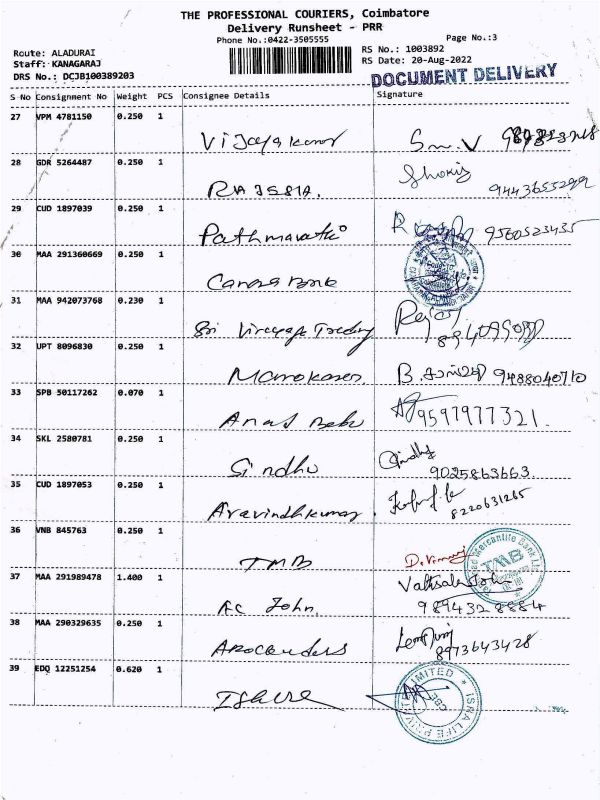 THE PROFESSIONAL COURIERS, Coimbatore
Delivery Runsheet - PRR
Phone No.:0422-3505555 Page No.:3
Route: ALADURAI RS No.: 1003892
Staff: KANAGARAJ RS Date: 20-Aug-2022
DRS No.: DCJB100389203
DOCUMENT DELIVERY
S No Consignment No Weight PCS Consignee Details Signature
27 VPM 4781150 0.250 1
Vijayakumar
28 GDR 5264487 0.250 1
29 CUD 1897039 0.250 1
Pathmavathi 9560523435
30 MAA 291360669 0.250 1
Canara Bank
31 MAA 942073768 0.230 1
Sri Vinayaga Trading
32 UPT 8096830 0.250 1
Manokaran B. 9488040710
33 SPB 50117262 0.070 1
9597977321.
34 SKL 2580781 0.250 1
Sindhu 9025863663.
35 CUD 1897053 0.250 1
Aravindhkumar 8220631265
36 VNB 845763 0.250 1
TMB
Tamilnad Mercantile Bank Ltd
TMB
37 MAA 291989478 1.400 1
AC John. Valtsala John
9894328884
38 MAA 290329635 0.250 1
8973643428
39 EDQ 12251254 0.620 1
ISRA LIFE PRIVATE LIMITED
CBE